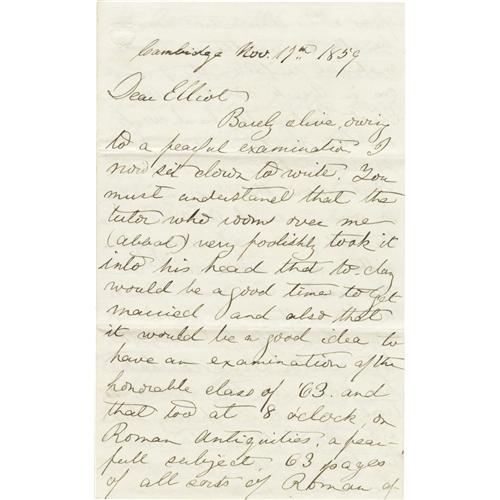 Cambridge Nov. 17th 1859
Dear Elliot
Barely alive, owing
to a peaful examination I
now set down to write. You
must understand that the
tutor who rooms over me
(about) very foolishly took it
into his head that to-day
would be a good time to get
married and also that
it would be a good idea to
have an examination of the
honorable class of '63. and
that too at 8 o'clock, on
Roman Antiquities, a pea-
full subject, 63 pages
of all sorts of Roman